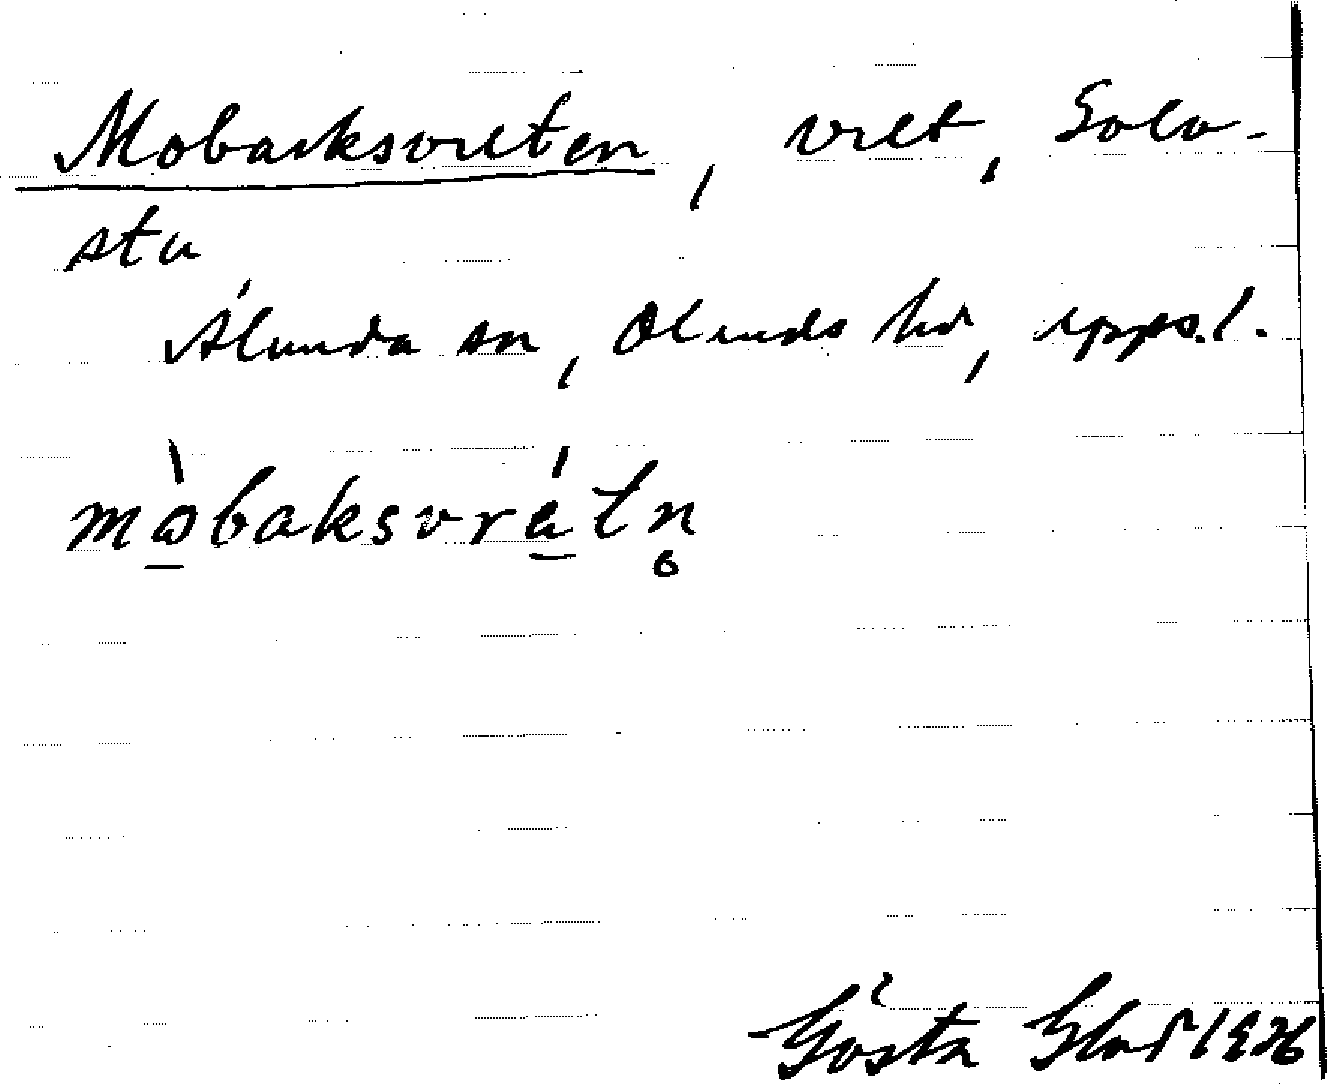 Mobacksvreten, vret, Golv-
sta
Alunda sn, Olands hd, Upps. l.
mobaksvretn
Gösta Glad 1926